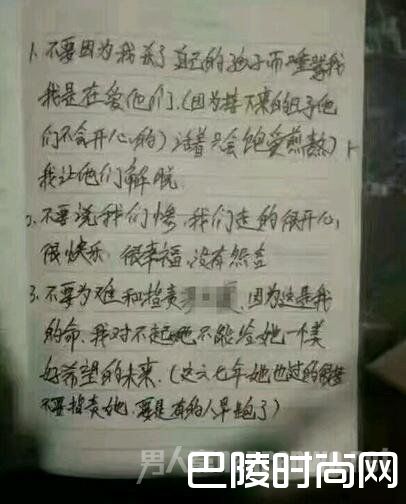 1. 不要因为我杀了自己的孩子而唾骂我
我是在爱他们.(因为接下来的日子他
们不会开心的)活着只会饱受煎熬)
我让他们解脱
2. 不要说我们惨,我们走的很开心,
很快乐 很幸福,没有怨言
3. 不要为难和指责 因为这是我
的命,我对不起她不能给她一个美
好希望的未来.(这六七年她也过的很苦
不要指责她,要是有的人早跑了)
男人
巴陵时尚网